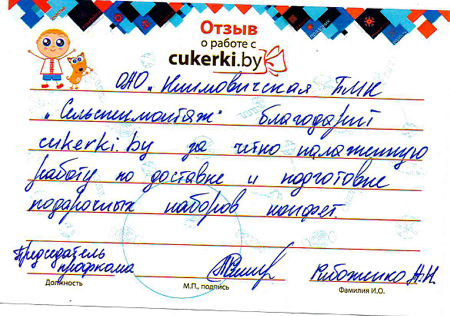 Отзыв
о работе с
cukerki.by
ОАО „Климовичская ПМК
„Сельхозмонтаж" благодарит
cukerki.by за чётко налаженную
работу по доставке и подготовке
подарочных наборов конфет.
Председатель
профкома
Должность
М.П., подпись
Фамилия И.О.